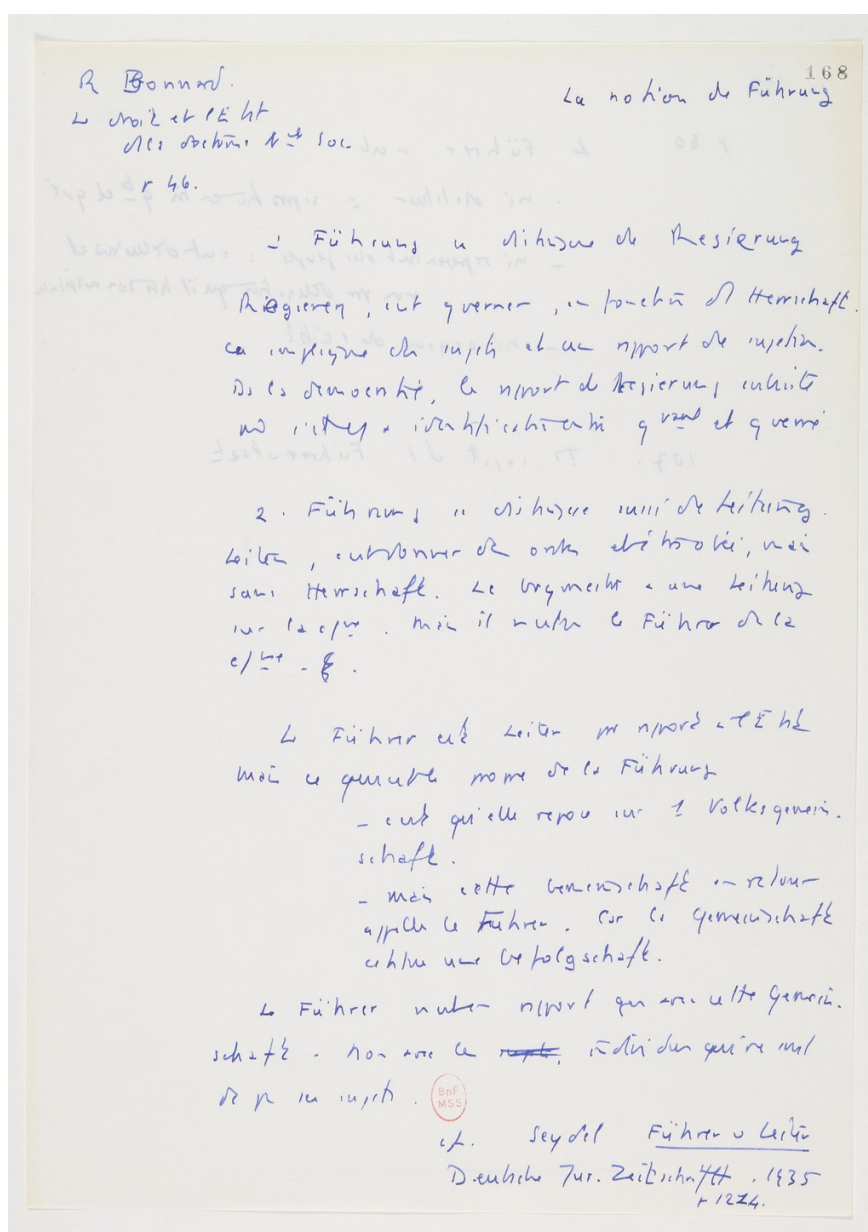 168
R Bonnard.
La notion de Führung
Le droit et l'Etat
ds la doctrine Nale Soc.
p 46.
- Führung se distingue de Regierung
Regieren, c'est gouverner, en fonction d'1 Herrschaft.
ca implique des sujets et un rapport de sujetion.
Ds les democratie, le rapport de Regierung subsiste
mö il n'y a identification entre gvant et gouverné
2. Führung se distingue aussi de Leitung.
Leiten, c'est donner des ordres et être obéi, mais
sans Herrschaft. Le a une Leitung
sur la . Mais il n'est pas le Führer de la
Le Führer est Leiter par rapport à l'Etat
mais ce qui est le propre de la Führung
- c'est qu'elle repose sur 1 Volksgemein.
schaft.
- mais cette Gemeinschaft en retour
appelle le Führer. Car la Gemeinschaft
est une Gefolgschaft.
Le Führer n'est en rapport qu'avec cette Gemein.
schaft. Non avec les individus qui ne sont
pas ses sujets.
BnF
MSS
cf. Seydel Führer u Leiter
Deutsche Jur. Zeitschrift. 1935
p 1274.